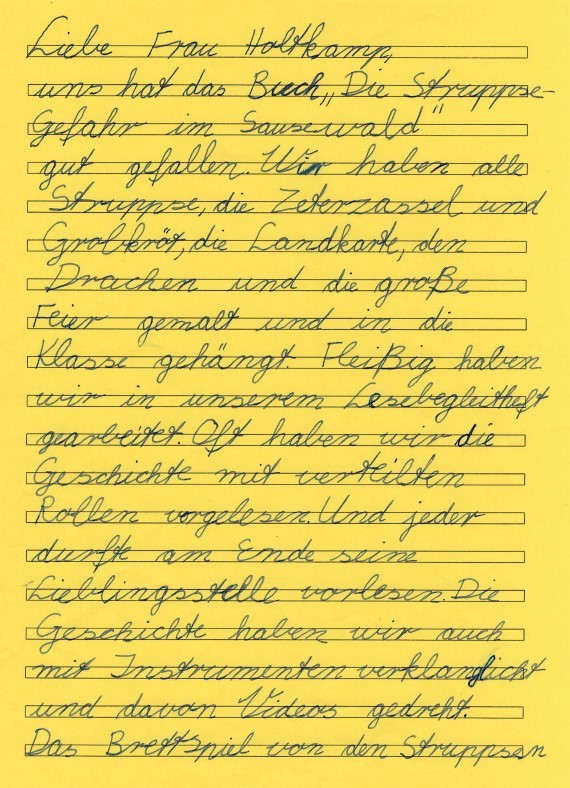 Liebe Frau Holtkamp,
uns hat das Buch „Die Struppse-
Gefahr im Sausewald"
gut gefallen. Wir haben alle
Struppse, die Zeterzassel und
Grobkröt, die Landkarte, den
Drachen und die große
Feier gemalt und in die
Klasse gehängt. Fleißig haben
wir in unserem Lesebegleitheft
gearbeitet. Oft haben wir die
Geschichte mit verteilten
Rollen vorgelesen. Und jeder
durfte am Ende seine
Lieblingsstelle vorlesen. Die
Geschichte haben wir auch
mit Instrumenten verklanglicht
und davon Videos gedreht.
Das Brettspiel von den Struppsen